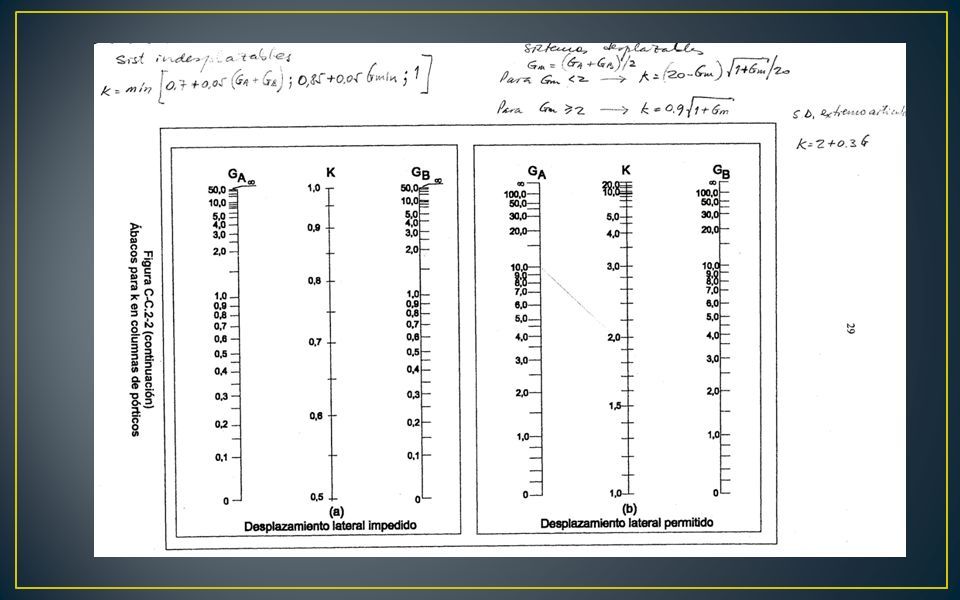 Sist indesplazables
K = min [0.7 + 0,05 (GA + GB) ; 0,85 + 0.05 Gmin ; 1]
Sistemas desplazables
Gm = (GA + GB)/2
Para Gm < 2 → K = (20 - Gm) √1+Gm /20
Para Gm ≥ 2 → K = 0.9 √1+Gm
S.D. extremo articul
K = 2 + 0.3 G
GA
K
GB
∞
50,0
10,0
5,0
4,0
3,0
2,0
1,0
0,9
0,8
0,7
0,6
0,5
0,4
0,3
0,2
0,1
0
1,0
0,9
0,8
0,7
0,6
0,5
∞
50,0
10,0
5,0
4,0
3,0
2,0
1,0
0,9
0,8
0,7
0,6
0,5
0,4
0,3
0,2
0,1
0
(a)
Desplazamiento lateral impedido
GA
K
GB
∞
100,0
50,0
30,0
20,0
10,0
9,0
8,0
7,0
6,0
5,0
4,0
3,0
2,0
1,0
0
20,0
10,0
5,0
4,0
3,0
2,0
1,5
1,0
∞
100,0
50,0
30,0
20,0
10,0
9,0
8,0
7,0
6,0
5,0
4,0
3,0
2,0
1,0
0
(b)
Desplazamiento lateral permitido
Figura C-C.2-2 (continuación)
Ábacos para k en columnas de pórticos
29